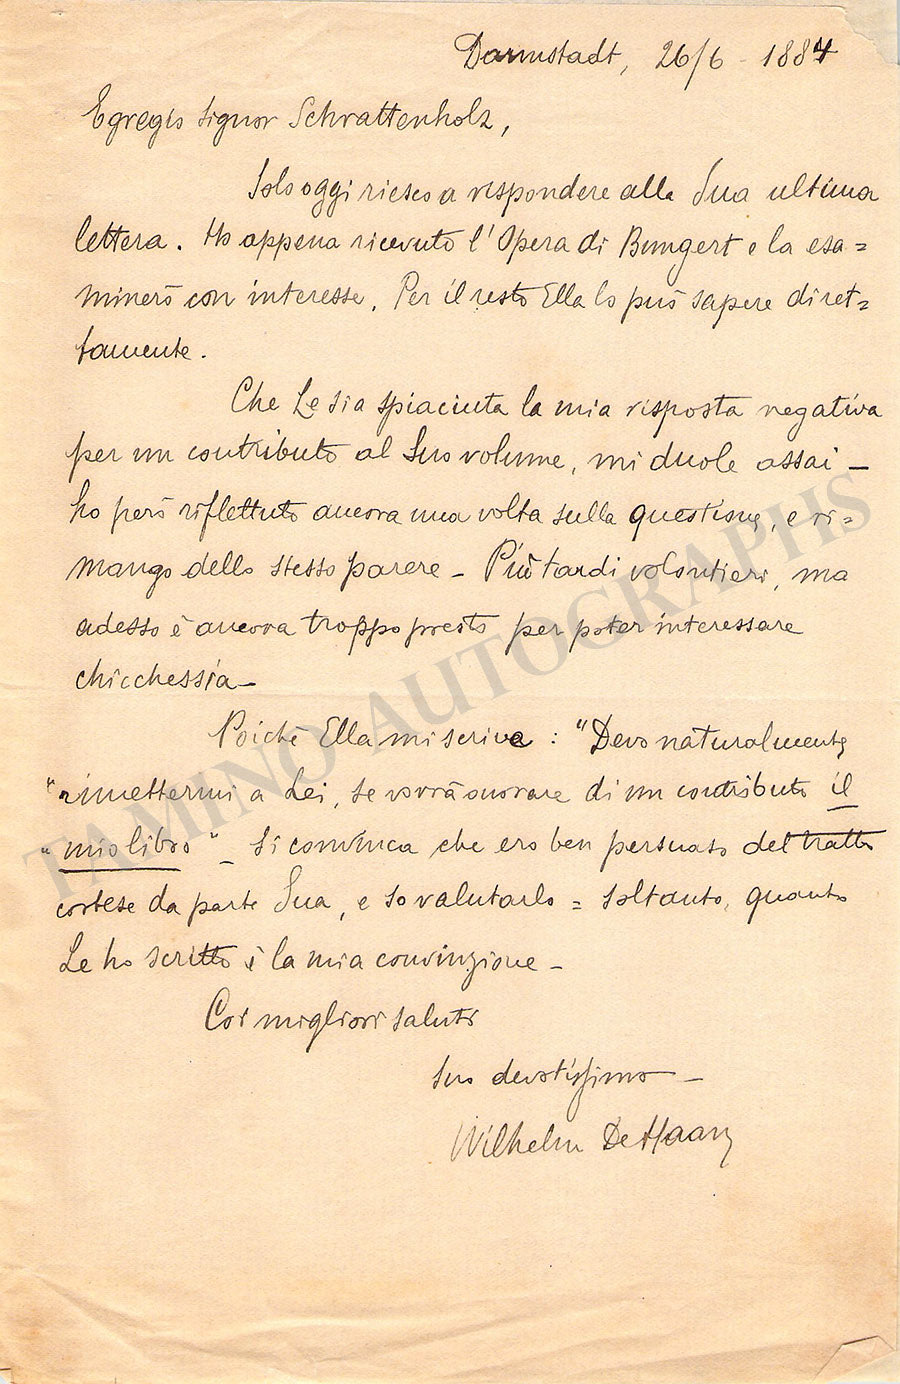 Darmstadt, 26/6 - 1884
Egregio Signor Schrattenholz,
Solo oggi riesco a rispondere alla Sua ultima
lettera. Ho appena ricevuto l'Opera di Bungert e la esa=
minerò con interesse. Per il resto Ella lo può sapere diret=
tamente.
Che Le sia spiaciuta la mia risposta negativa
per un contributo al Suo volume, mi duole assai –
ho però riflettuto ancora una volta sulla questione, e ri=
mango dello stesso parere – Più tardi volontieri, ma
adesso è ancora troppo presto per poter interessare
chicchessia –
Poichè Ella mi scrive : "Devo naturalmente
"rimettermi a Lei, se vorrà onorare di un contributo il
"mio libro" – Si convinca che ero ben persuaso del tratto
cortese da parte Sua, e so valutarlo = soltanto, quanto
Le ho scritto è la mia convinzione –
Coi migliori saluti
Suo devotissimo –
Wilhelm De Haan
TAMINO AUTOGRAPHS